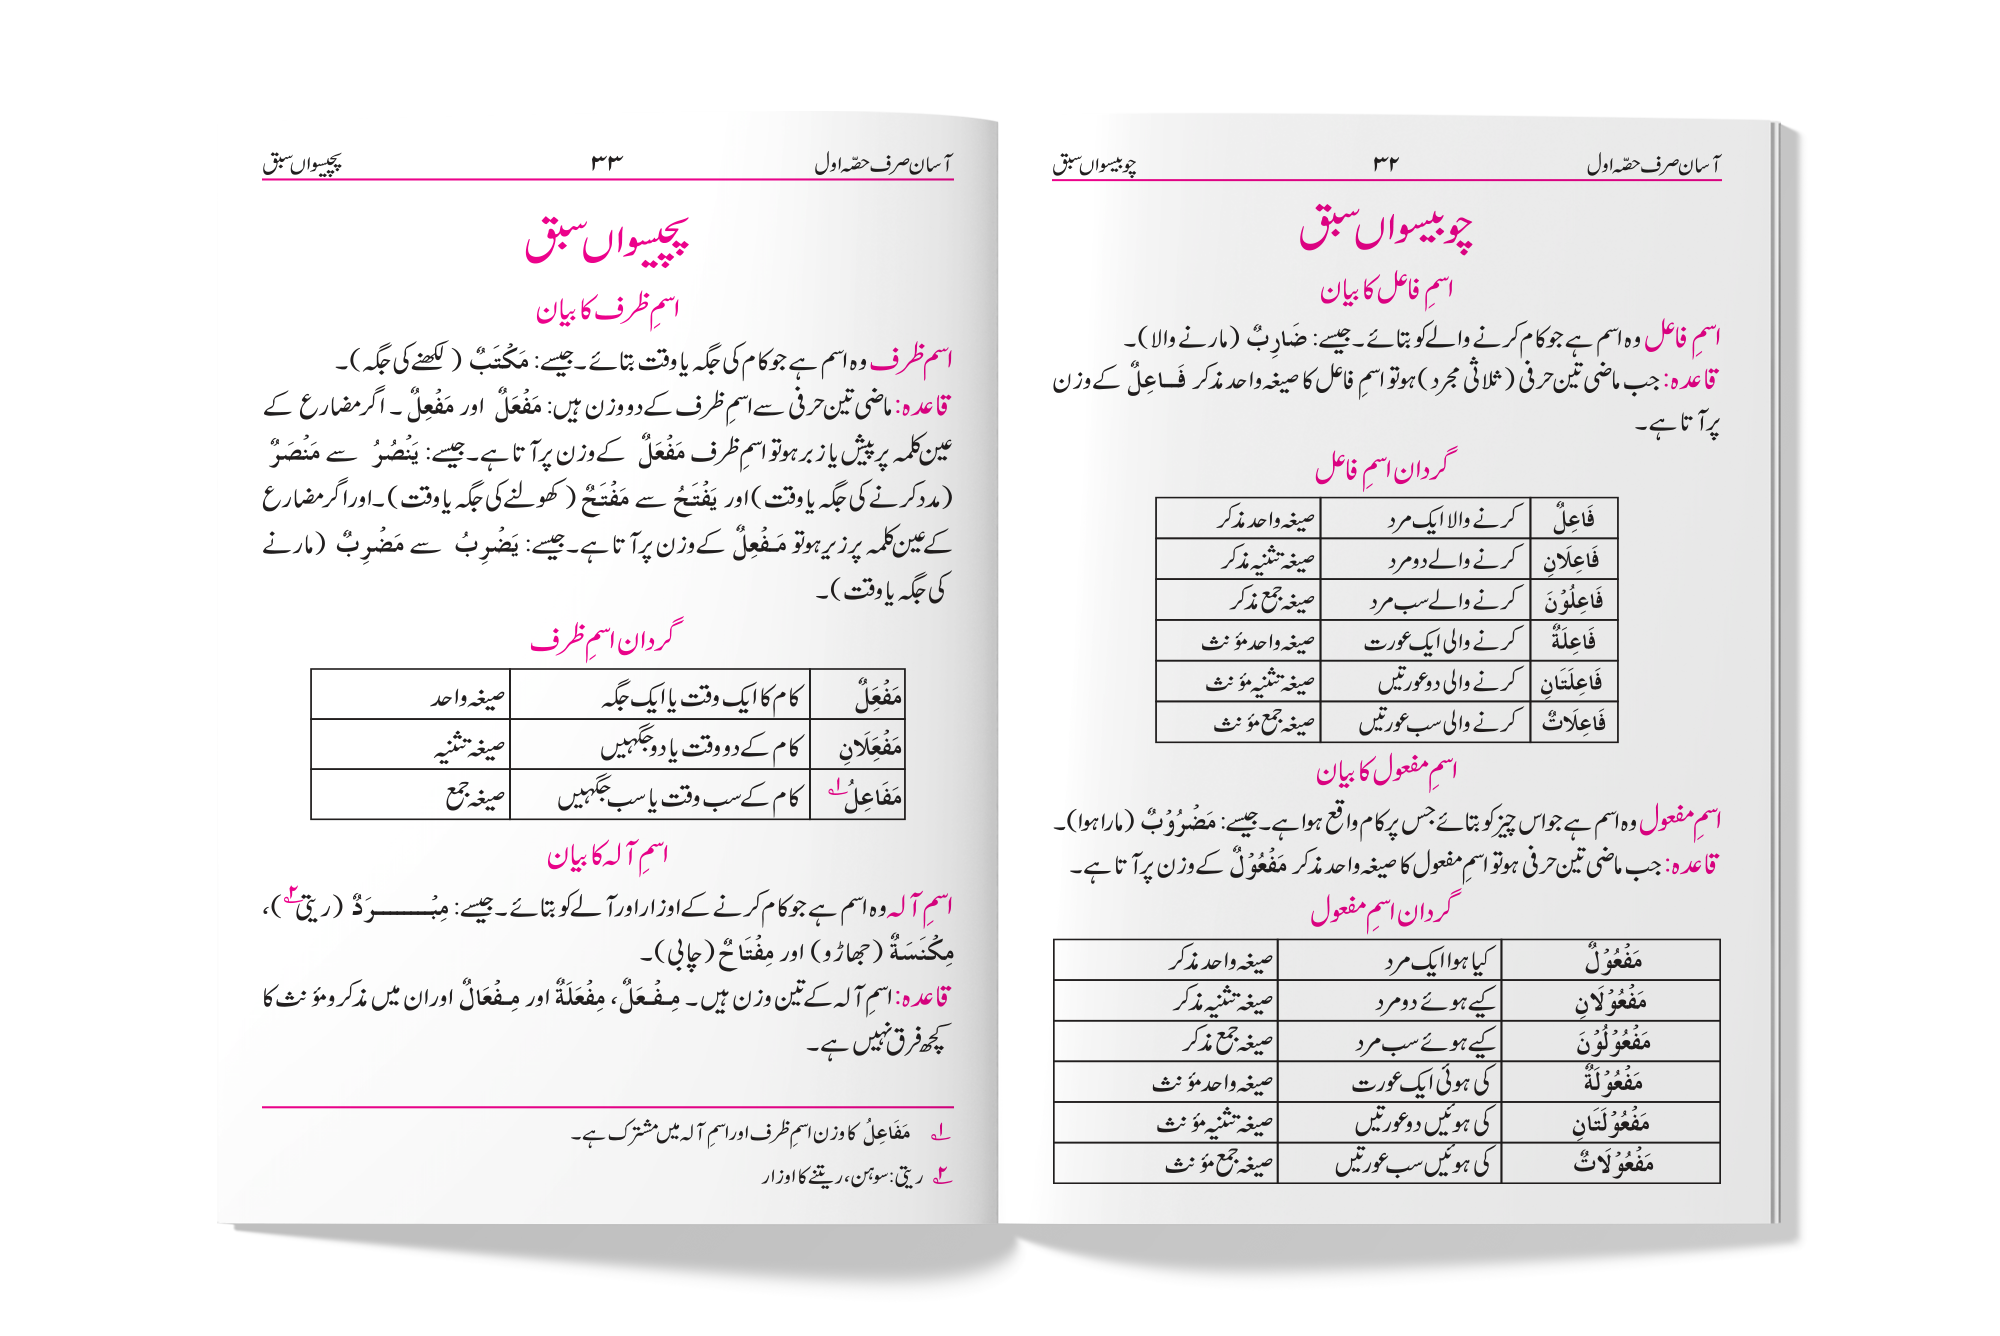 آسان صرف حصّہ اول ۳۲ چوبیسواں سبق
چوبیسواں سبق
اسمِ فاعل کا بیان
اسمِ فاعل وہ اسم ہے جو کام کرنے والے کو بتائے۔ جیسے: ضَارِبٌ (مارنے والا)۔
قاعدہ: جب ماضی تین حرفی (ثلاثی مجرد) ہو تو اسمِ فاعل کا صیغہ واحد مذکر فَـاعِلٌ کے وزن
پر آتا ہے۔
گردان اسمِ فاعل
فَاعِلٌ کرنے والا ایک مرد صیغہ واحد مذکر
فَاعِلَانِ کرنے والے دو مرد صیغہ تثنیہ مذکر
فَاعِلُوْنَ کرنے والے سب مرد صیغہ جمع مذکر
فَاعِلَةٌ کرنے والی ایک عورت صیغہ واحد مؤنث
فَاعِلَتَانِ کرنے والی دو عورتیں صیغہ تثنیہ مؤنث
فَاعِلَاتٌ کرنے والی سب عورتیں صیغہ جمع مؤنث
اسمِ مفعول کا بیان
اسمِ مفعول وہ اسم ہے جو اس چیز کو بتائے جس پر کام واقع ہوا ہے۔ جیسے: مَضْرُوْبٌ (مارا ہوا)۔
قاعدہ: جب ماضی تین حرفی ہو تو اسمِ مفعول کا صیغہ واحد مذکر مَفْعُوْلٌ کے وزن پر آتا ہے۔
گردان اسمِ مفعول
مَفْعُوْلٌ کیا ہوا ایک مرد صیغہ واحد مذکر
مَفْعُوْلَانِ کیے ہوئے دو مرد صیغہ تثنیہ مذکر
مَفْعُوْلُوْنَ کیے ہوئے سب مرد صیغہ جمع مذکر
مَفْعُوْلَةٌ کی ہوئی ایک عورت صیغہ واحد مؤنث
مَفْعُوْلَتَانِ کی ہوئیں دو عورتیں صیغہ تثنیہ مؤنث
مَفْعُوْلَاتٌ کی ہوئیں سب عورتیں صیغہ جمع مؤنث
آسان صرف حصّہ اول ۳۳ پچیسواں سبق
پچیسواں سبق
اسمِ ظرف کا بیان
اسم ظرف وہ اسم ہے جو کام کی جگہ یا وقت بتائے۔ جیسے: مَكْتَبٌ (لکھنے کی جگہ)۔
قاعدہ: ماضی تین حرفی سے اسمِ ظرف کے دو وزن ہیں: مَفْعَلٌ اور مَفْعِلٌ ۔ اگر مضارع کے
عین کلمہ پر پیش یا زبر ہو تو اسمِ ظرف مَفْعَلٌ کے وزن پر آتا ہے۔ جیسے: يَنْصُرُ سے مَنْصَرٌ
(مدد کرنے کی جگہ یا وقت) اور يَفْتَحُ سے مَفْتَحٌ (کھولنے کی جگہ یا وقت)۔ اور اگر مضارع
کے عین کلمہ پر زیر ہو تو مَـفْعِلٌ کے وزن پر آتا ہے۔ جیسے: يَضْرِبُ سے مَضْرِبٌ (مارنے
کی جگہ یا وقت)۔
گردان اسمِ ظرف
مَفْعَِلٌ کام کا ایک وقت یا ایک جگہ صیغہ واحد
مَفْعَِلَانِ کام کے دو وقت یا دو جگہیں صیغہ تثنیہ
مَفَاعِلُ ۱؎ کام کے سب وقت یا سب جگہیں صیغہ جمع
اسمِ آلہ کا بیان
اسمِ آلہ وہ اسم ہے جو کام کرنے کے اوزار اور آلے کو بتائے۔ جیسے: مِبْـــرَدٌ (ریتی ۲؎)،
مِكْنَسَةٌ (جھاڑو) اور مِفْتَاحٌ (چابی)۔
قاعدہ: اسمِ آلہ کے تین وزن ہیں۔ مِـفْـعَلٌ، مِفْعَلَةٌ اور مِـفْعَالٌ اور ان میں مذکر و مؤنث کا
کچھ فرق نہیں ہے۔
۱؎ مَفَاعِلُ کا وزن اسمِ ظرف اور اسمِ آلہ میں مشترک ہے۔
۲؎ ریتی: سوہن، ریتنے کا اوزار